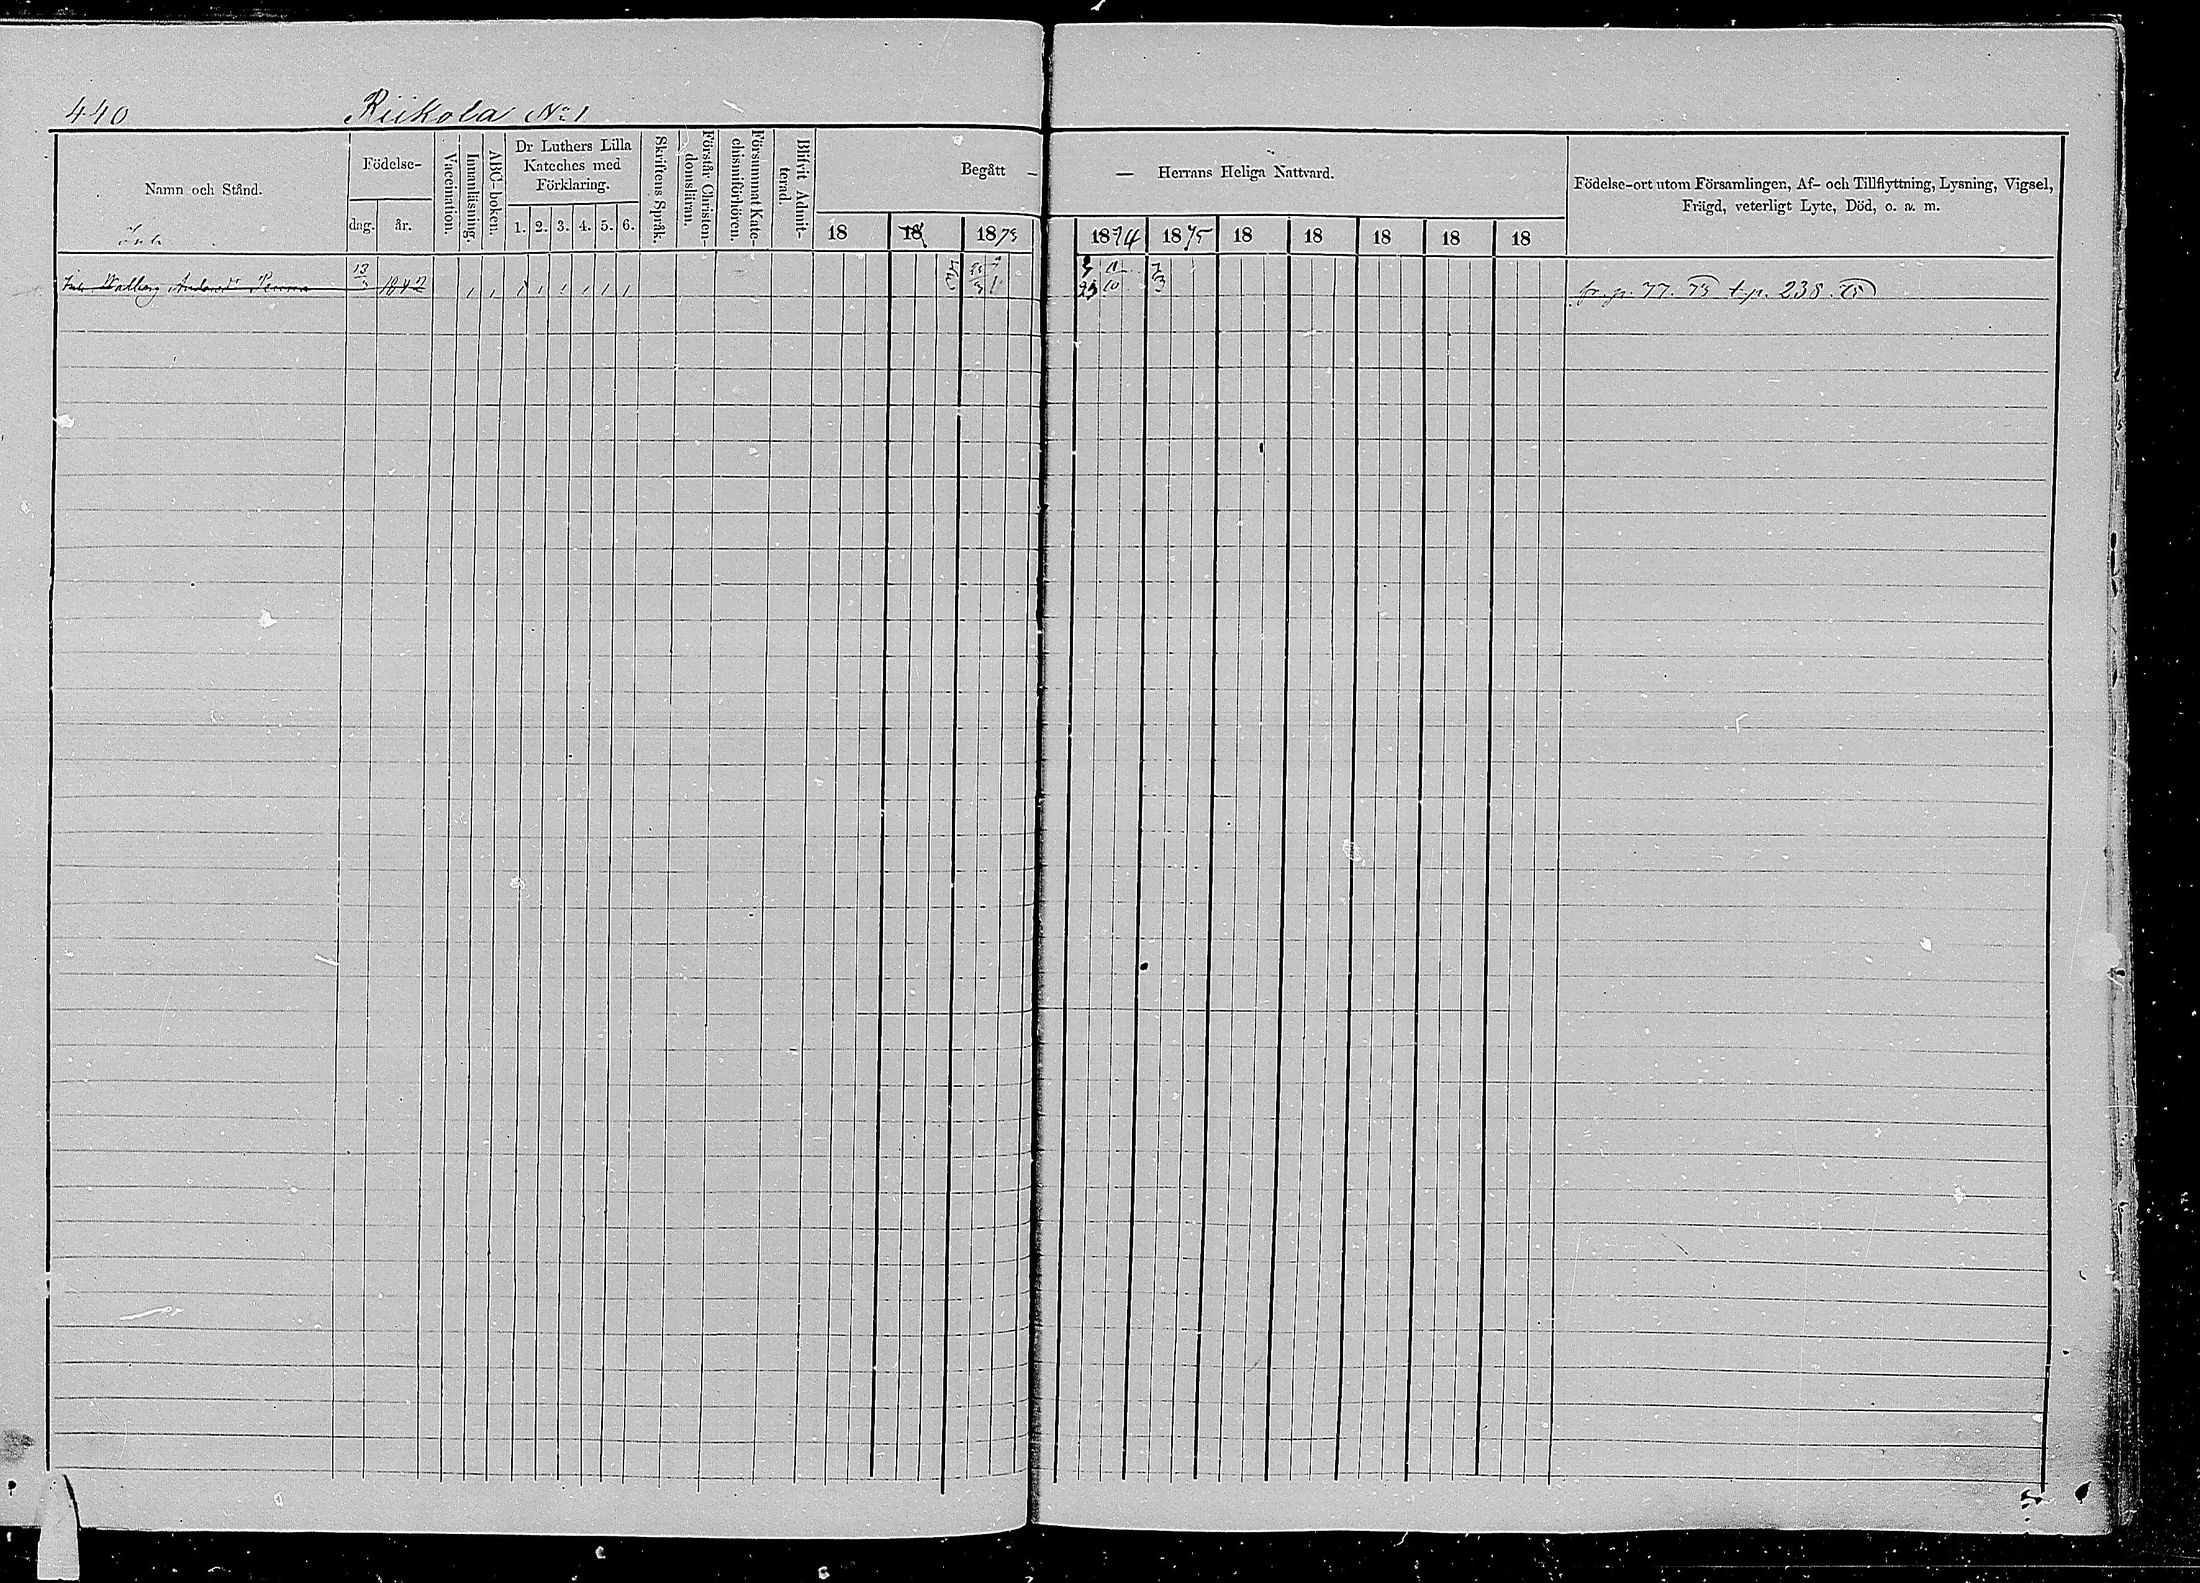 440 Riikola No 1
Namn och Stånd.
Födelse-
dag. år.
Vaccination.
Innanläsning.
ABC-boken.
Dr Luthers Lilla
Kateches med
Förklaring.
1. 2. 3. 4. 5. 6.
Skriftens Språk.
Förstår Christen-
domsläran.
Försummat Kate-
chismiförhören.
Blifvit Admit-
terad.
Begått — — Herrans Heliga Nattvard.
18 18 1873 1874 1875 18 18 18 18 18
Födelse-ort utom Församlingen, Af- och Tillflyttning, Lysning, Vigsel,
Frägd, veterligt Lyte, Död, o. a. m.
Inh.
Walborg Andersd:r
fr. p. 77. 73 t. p. 238. 75